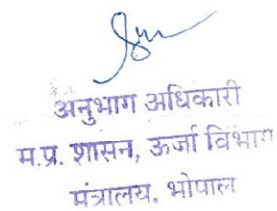 अनुभाग अधिकारी
म.प्र. शासन, ऊर्जा विभाग
मंत्रालय, भोपाल